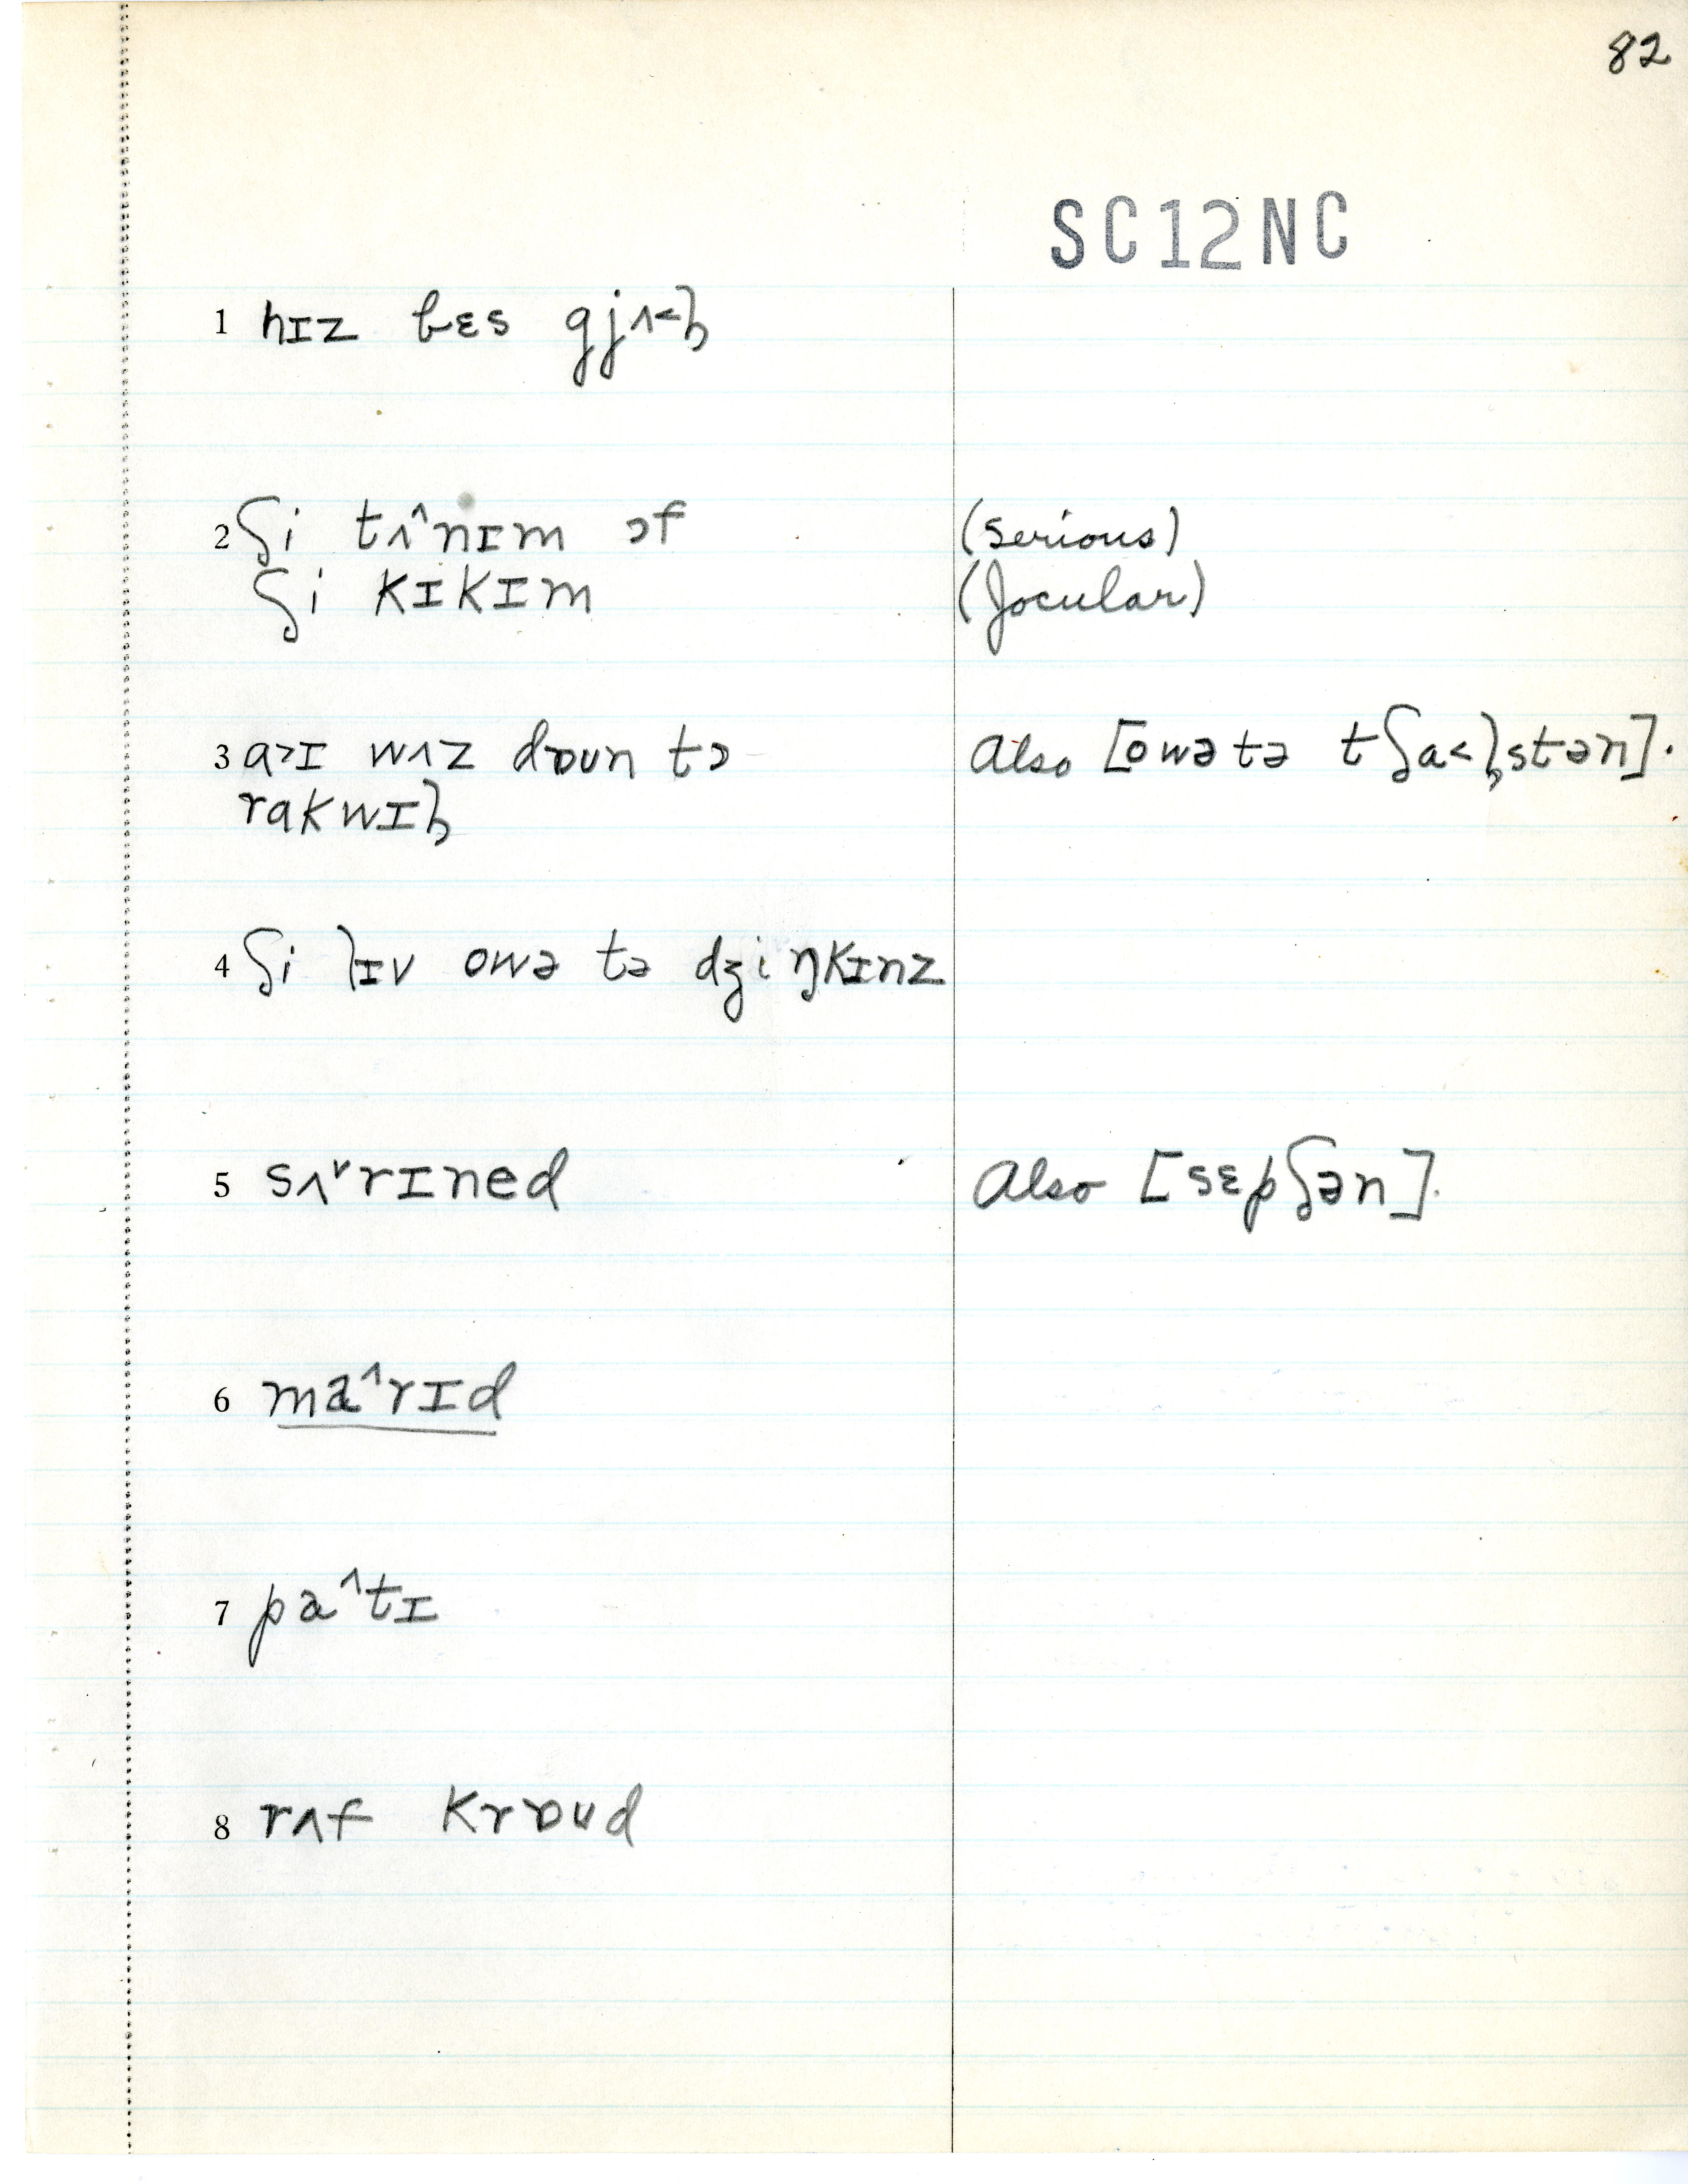 82
SC12NC
1 hɪz bɛs gjʌ˂ɫ
2 ʃi tʌ˄nɪm ɔf (serious)
ʃi kɪkɪm (Jocular)
3 a˃ɪ wʌz dɒun tə Also [owə tə tʃa˂ɫstən].
rakwɪɫ
4 ʃi lɪv owə tə dʒiŋkɪnz
5 sʌ˅rɪned Also [sɛpʃən].
6 ma˄rɪd
7 pa˄tɪ
8 rʌf krɒud